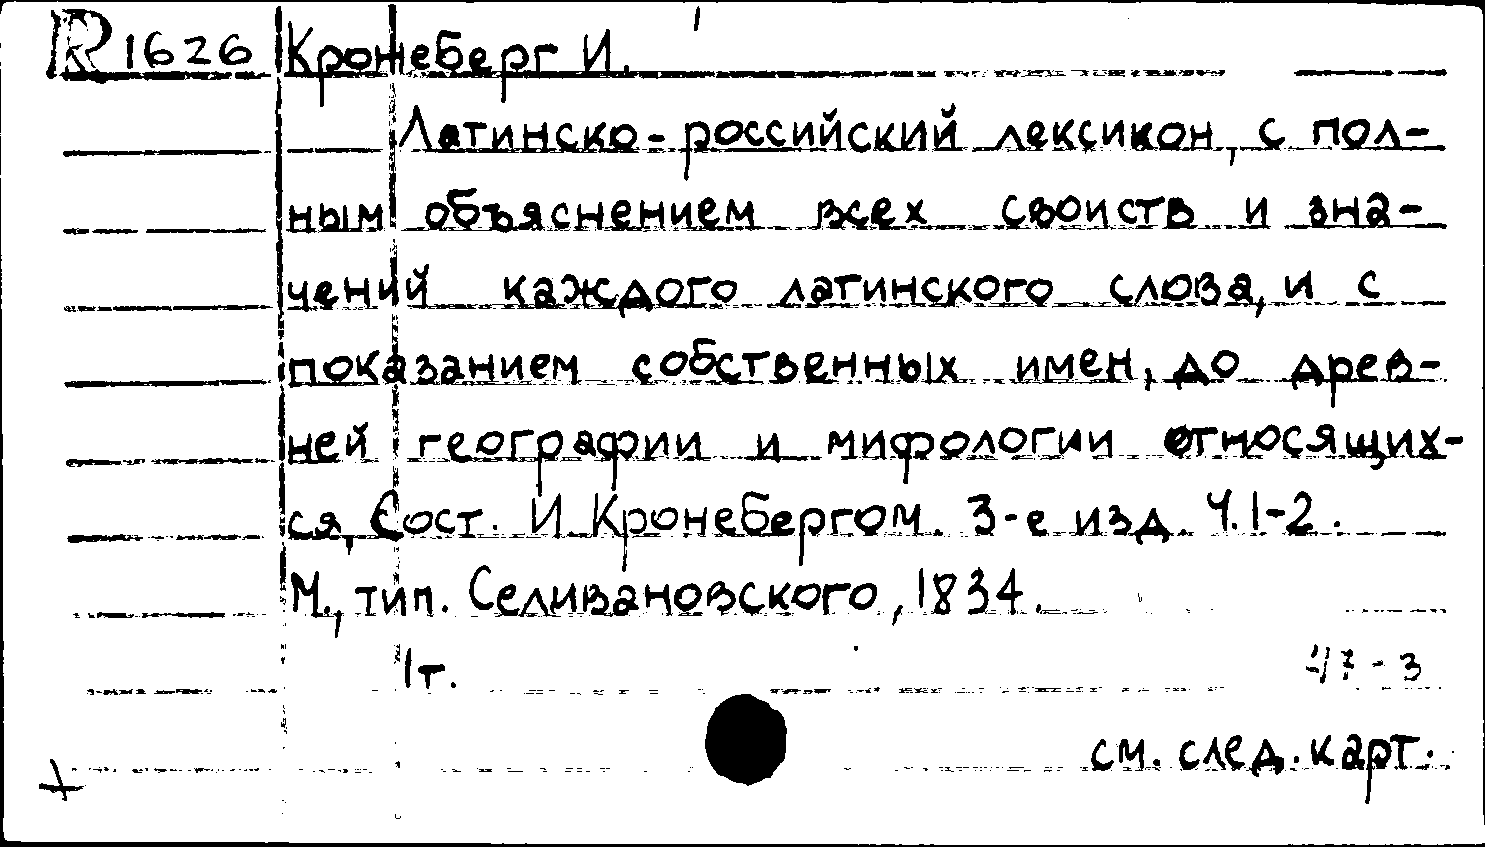 R 1626 Кронеберг И.
Латинско-российский лексикон, с пол-
ным объяснением всех своиств и зна-
чений каждого латинского слова, и с
показанием собственных имен, до древ-
ней географии и мифологии относящих-
ся, Сост. И Кронебергом. 3-е изд. Ч.1-2.
М., тип. Селивановского, 1834.
1т.
47-3
см. след. карт.